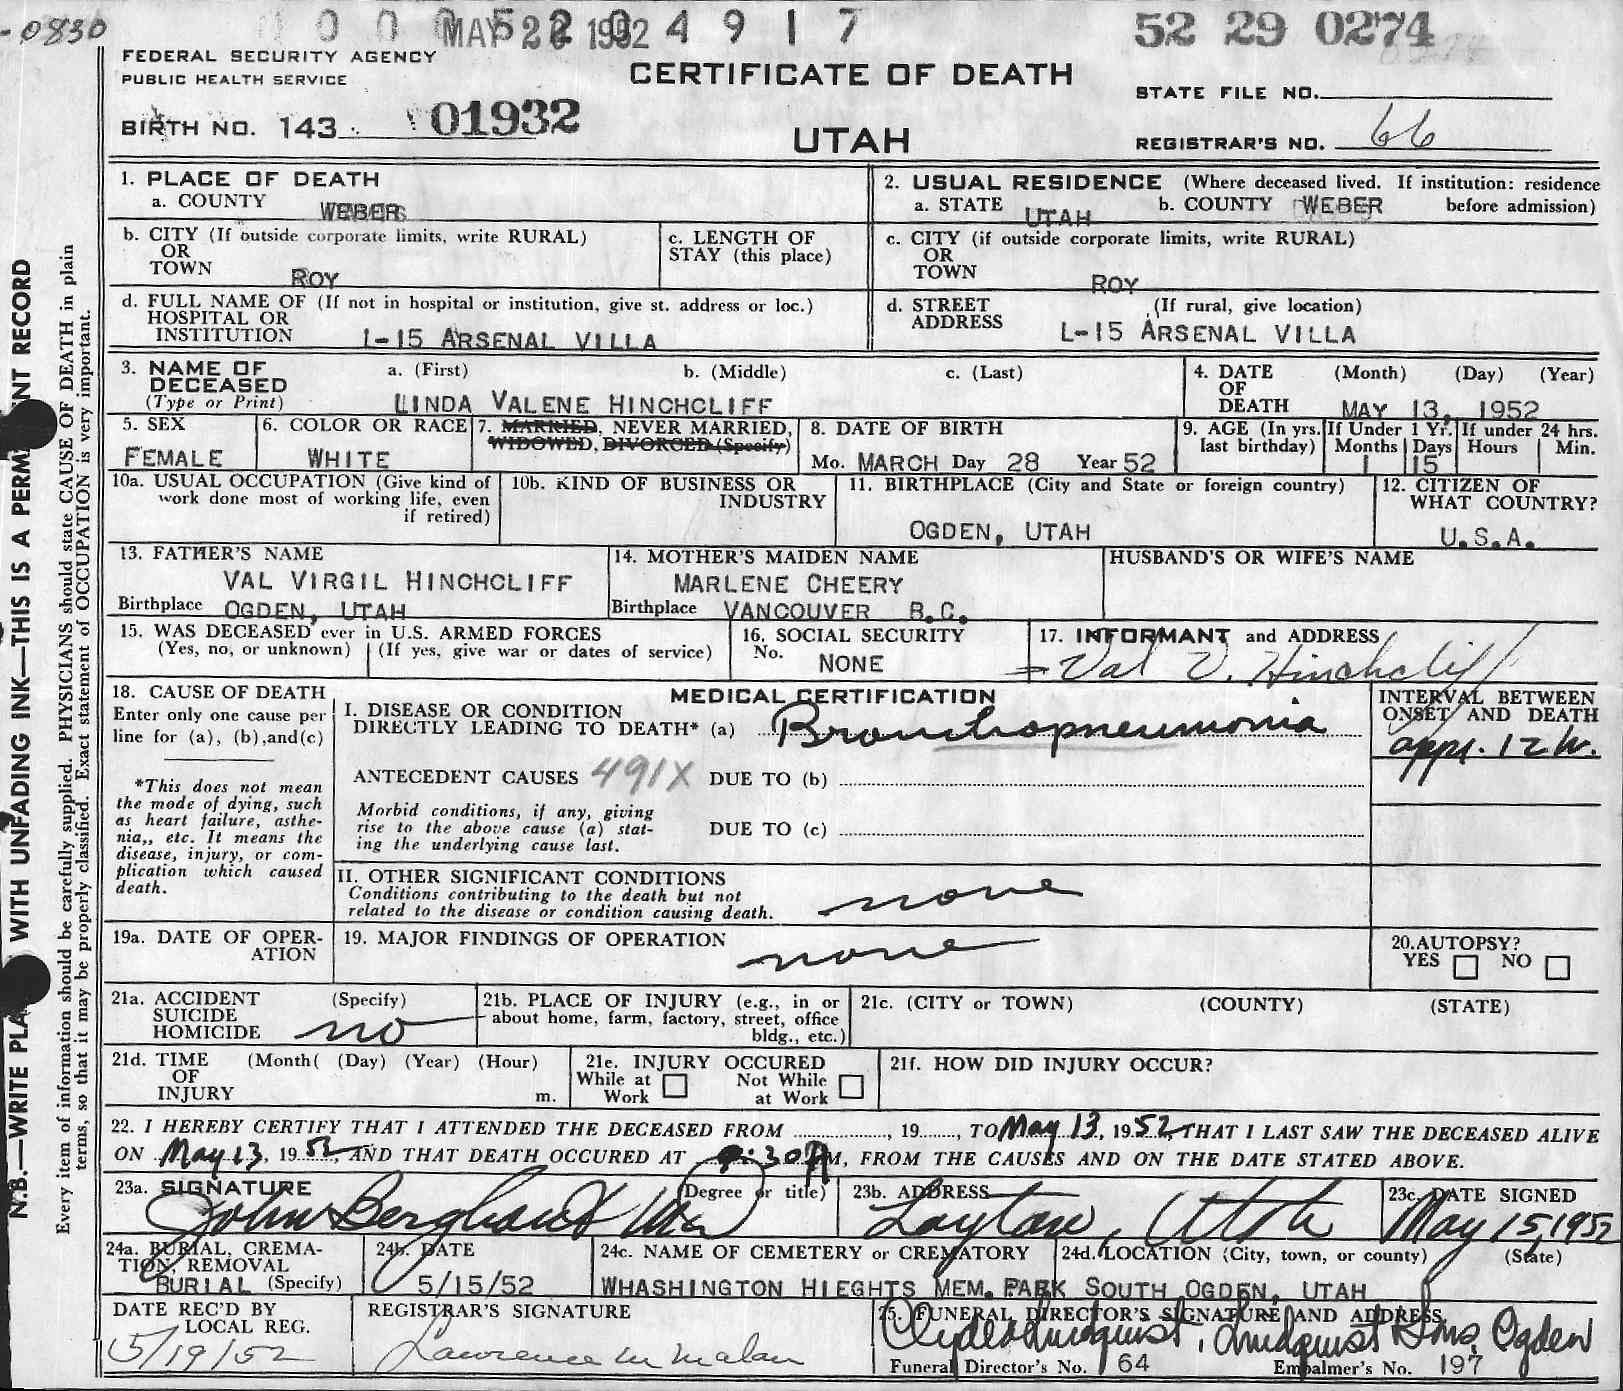 -0830
MAY 26 1952
4 9 1 7
52 29 0274
FEDERAL SECURITY AGENCY
PUBLIC HEALTH SERVICE
CERTIFICATE OF DEATH
STATE FILE NO.
BIRTH NO. 143 01932
UTAH
REGISTRAR'S NO. 66
1. PLACE OF DEATH
a. COUNTY WEBER
2. USUAL RESIDENCE (Where deceased lived. If institution: residence before admission)
a. STATE UTAH b. COUNTY WEBER
b. CITY (If outside corporate limits, write RURAL)
OR
TOWN ROY
c. LENGTH OF
STAY (this place)
c. CITY (if outside corporate limits, write RURAL)
OR
TOWN ROY
d. FULL NAME OF (If not in hospital or institution, give st. address or loc.)
HOSPITAL OR
INSTITUTION L-15 ARSENAL VILLA
d. STREET (If rural, give location)
ADDRESS L-15 ARSENAL VILLA
3. NAME OF a. (First) b. (Middle) c. (Last)
DECEASED
(Type or Print) LINDA VALENE HINCHCLIFF
4. DATE (Month) (Day) (Year)
OF
DEATH MAY 13, 1952
5. SEX
FEMALE
6. COLOR OR RACE
WHITE
7. MARRIED, NEVER MARRIED,
WIDOWED, DIVORCED (Specify)
8. DATE OF BIRTH
Mo. MARCH Day 28 Year 52
9. AGE (In yrs. last birthday)
If Under 1 Yr.
Months Days
1 15
If under 24 hrs.
Hours Min.
10a. USUAL OCCUPATION (Give kind of
work done most of working life, even
if retired)
10b. KIND OF BUSINESS OR
INDUSTRY
11. BIRTHPLACE (City and State or foreign country)
OGDEN, UTAH
12. CITIZEN OF
WHAT COUNTRY?
U.S.A.
13. FATHER'S NAME
VAL VIRGIL HINCHCLIFF
Birthplace OGDEN, UTAH
14. MOTHER'S MAIDEN NAME
MARLENE CHEERY
Birthplace VANCOUVER B.C.
HUSBAND'S OR WIFE'S NAME
15. WAS DECEASED ever in U.S. ARMED FORCES
(Yes, no, or unknown) (If yes, give war or dates of service)
16. SOCIAL SECURITY
No. NONE
17. INFORMANT and ADDRESS
Val V. Hinchcliff
18. CAUSE OF DEATH
Enter only one cause per
line for (a), (b),and(c)
*This does not mean
the mode of dying, such
as heart failure, asthe-
nia,, etc. It means the
disease, injury, or com-
plication which caused
death.
MEDICAL CERTIFICATION
I. DISEASE OR CONDITION
DIRECTLY LEADING TO DEATH* (a) Bronchopneumonia
ANTECEDENT CAUSES 491X DUE TO (b)
Morbid conditions, if any, giving
rise to the above cause (a) stat-
ing the underlying cause last.
DUE TO (c)
INTERVAL BETWEEN
ONSET AND DEATH
appr. 12 hr.
II. OTHER SIGNIFICANT CONDITIONS
Conditions contributing to the death but not
related to the disease or condition causing death.
none
19a. DATE OF OPER-
ATION
19. MAJOR FINDINGS OF OPERATION
none
20.AUTOPSY?
YES NO
21a. ACCIDENT (Specify)
SUICIDE
HOMICIDE no
21b. PLACE OF INJURY (e.g., in or
about home, farm, factory, street, office
bldg., etc.)
21c. (CITY or TOWN) (COUNTY) (STATE)
21d. TIME (Month( (Day) (Year) (Hour)
OF
INJURY m.
21e. INJURY OCCURED
While at Work Not While at Work
21f. HOW DID INJURY OCCUR?
22. I HEREBY CERTIFY THAT I ATTENDED THE DECEASED FROM , 19 , TO May 13, 1952, THAT I LAST SAW THE DECEASED ALIVE
ON May 13, 1952, AND THAT DEATH OCCURED AT 9:30 AM, FROM THE CAUSES AND ON THE DATE STATED ABOVE.
23a. SIGNATURE (Degree or title)
John Berghout
23b. ADDRESS
Layton, Utah
23c. DATE SIGNED
May 15, 1952
24a. BURIAL, CREMA-
TION, REMOVAL
BURIAL (Specify)
24b. DATE
5/15/52
24c. NAME OF CEMETERY or CREMATORY
WHASHINGTON HIEGHTS MEM. PARK
24d. LOCATION (City, town, or county) (State)
SOUTH OGDEN, UTAH
DATE REC'D BY
LOCAL REG.
5/19/52
REGISTRAR'S SIGNATURE
Lawrence M Malan
25. FUNERAL DIRECTOR'S SIGNATURE AND ADDRESS
Clyde Lindquist, Lindquist & Sons, Ogden
Funeral Director's No. 164 Embalmer's No. 197
N.B.—WRITE PLA WITH UNFADING INK—THIS IS A PERM NT RECORD
Every item of information should be carefully supplied. PHYSICIANS should state CAUSE OF DEATH in plain
terms, so that it may be properly classified. Exact statement of OCCUPATION is very important.